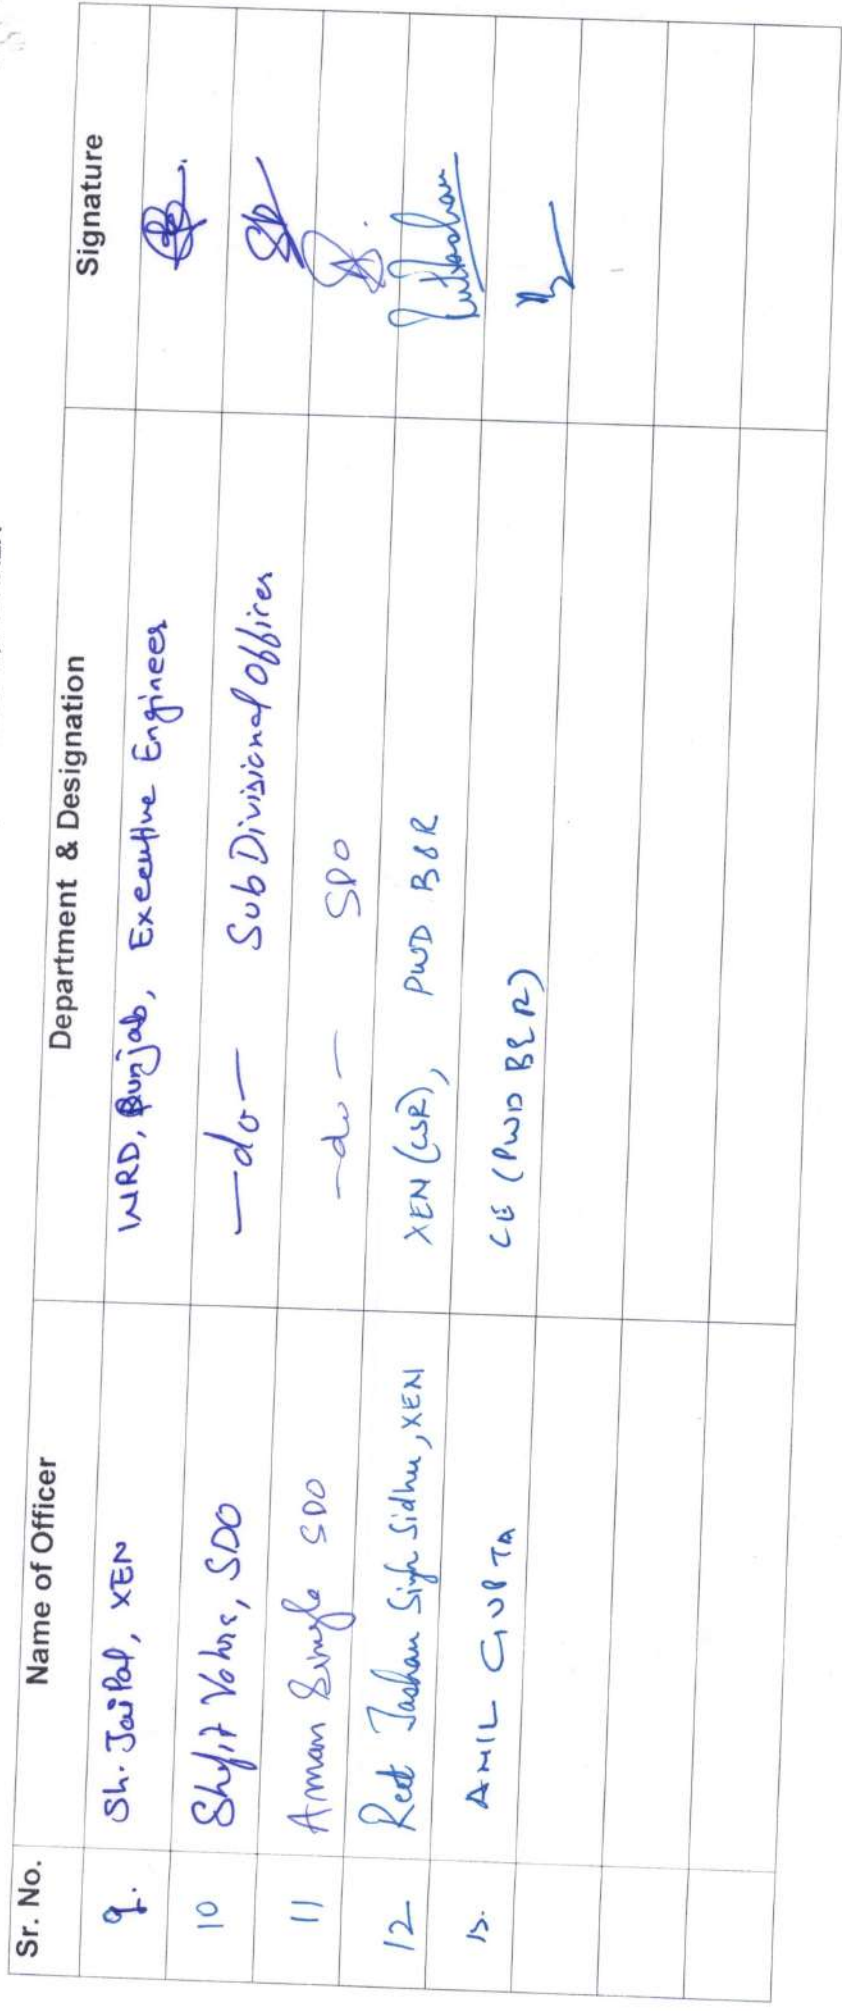 Sr. No. Name of Officer Department & Designation Signature
9. Sh. Jai Pal, XEN WRD, Punjab, Executive Engineer
10 Vohra, SDO —do— Sub Divisional Officer
11 Aman Singla SDO —do— SDO
12 Reet Jashan Singh Sidhu, XEN XEN (WR), PWD B&R
13. ANIL GUPTA CE (PWD B&R)